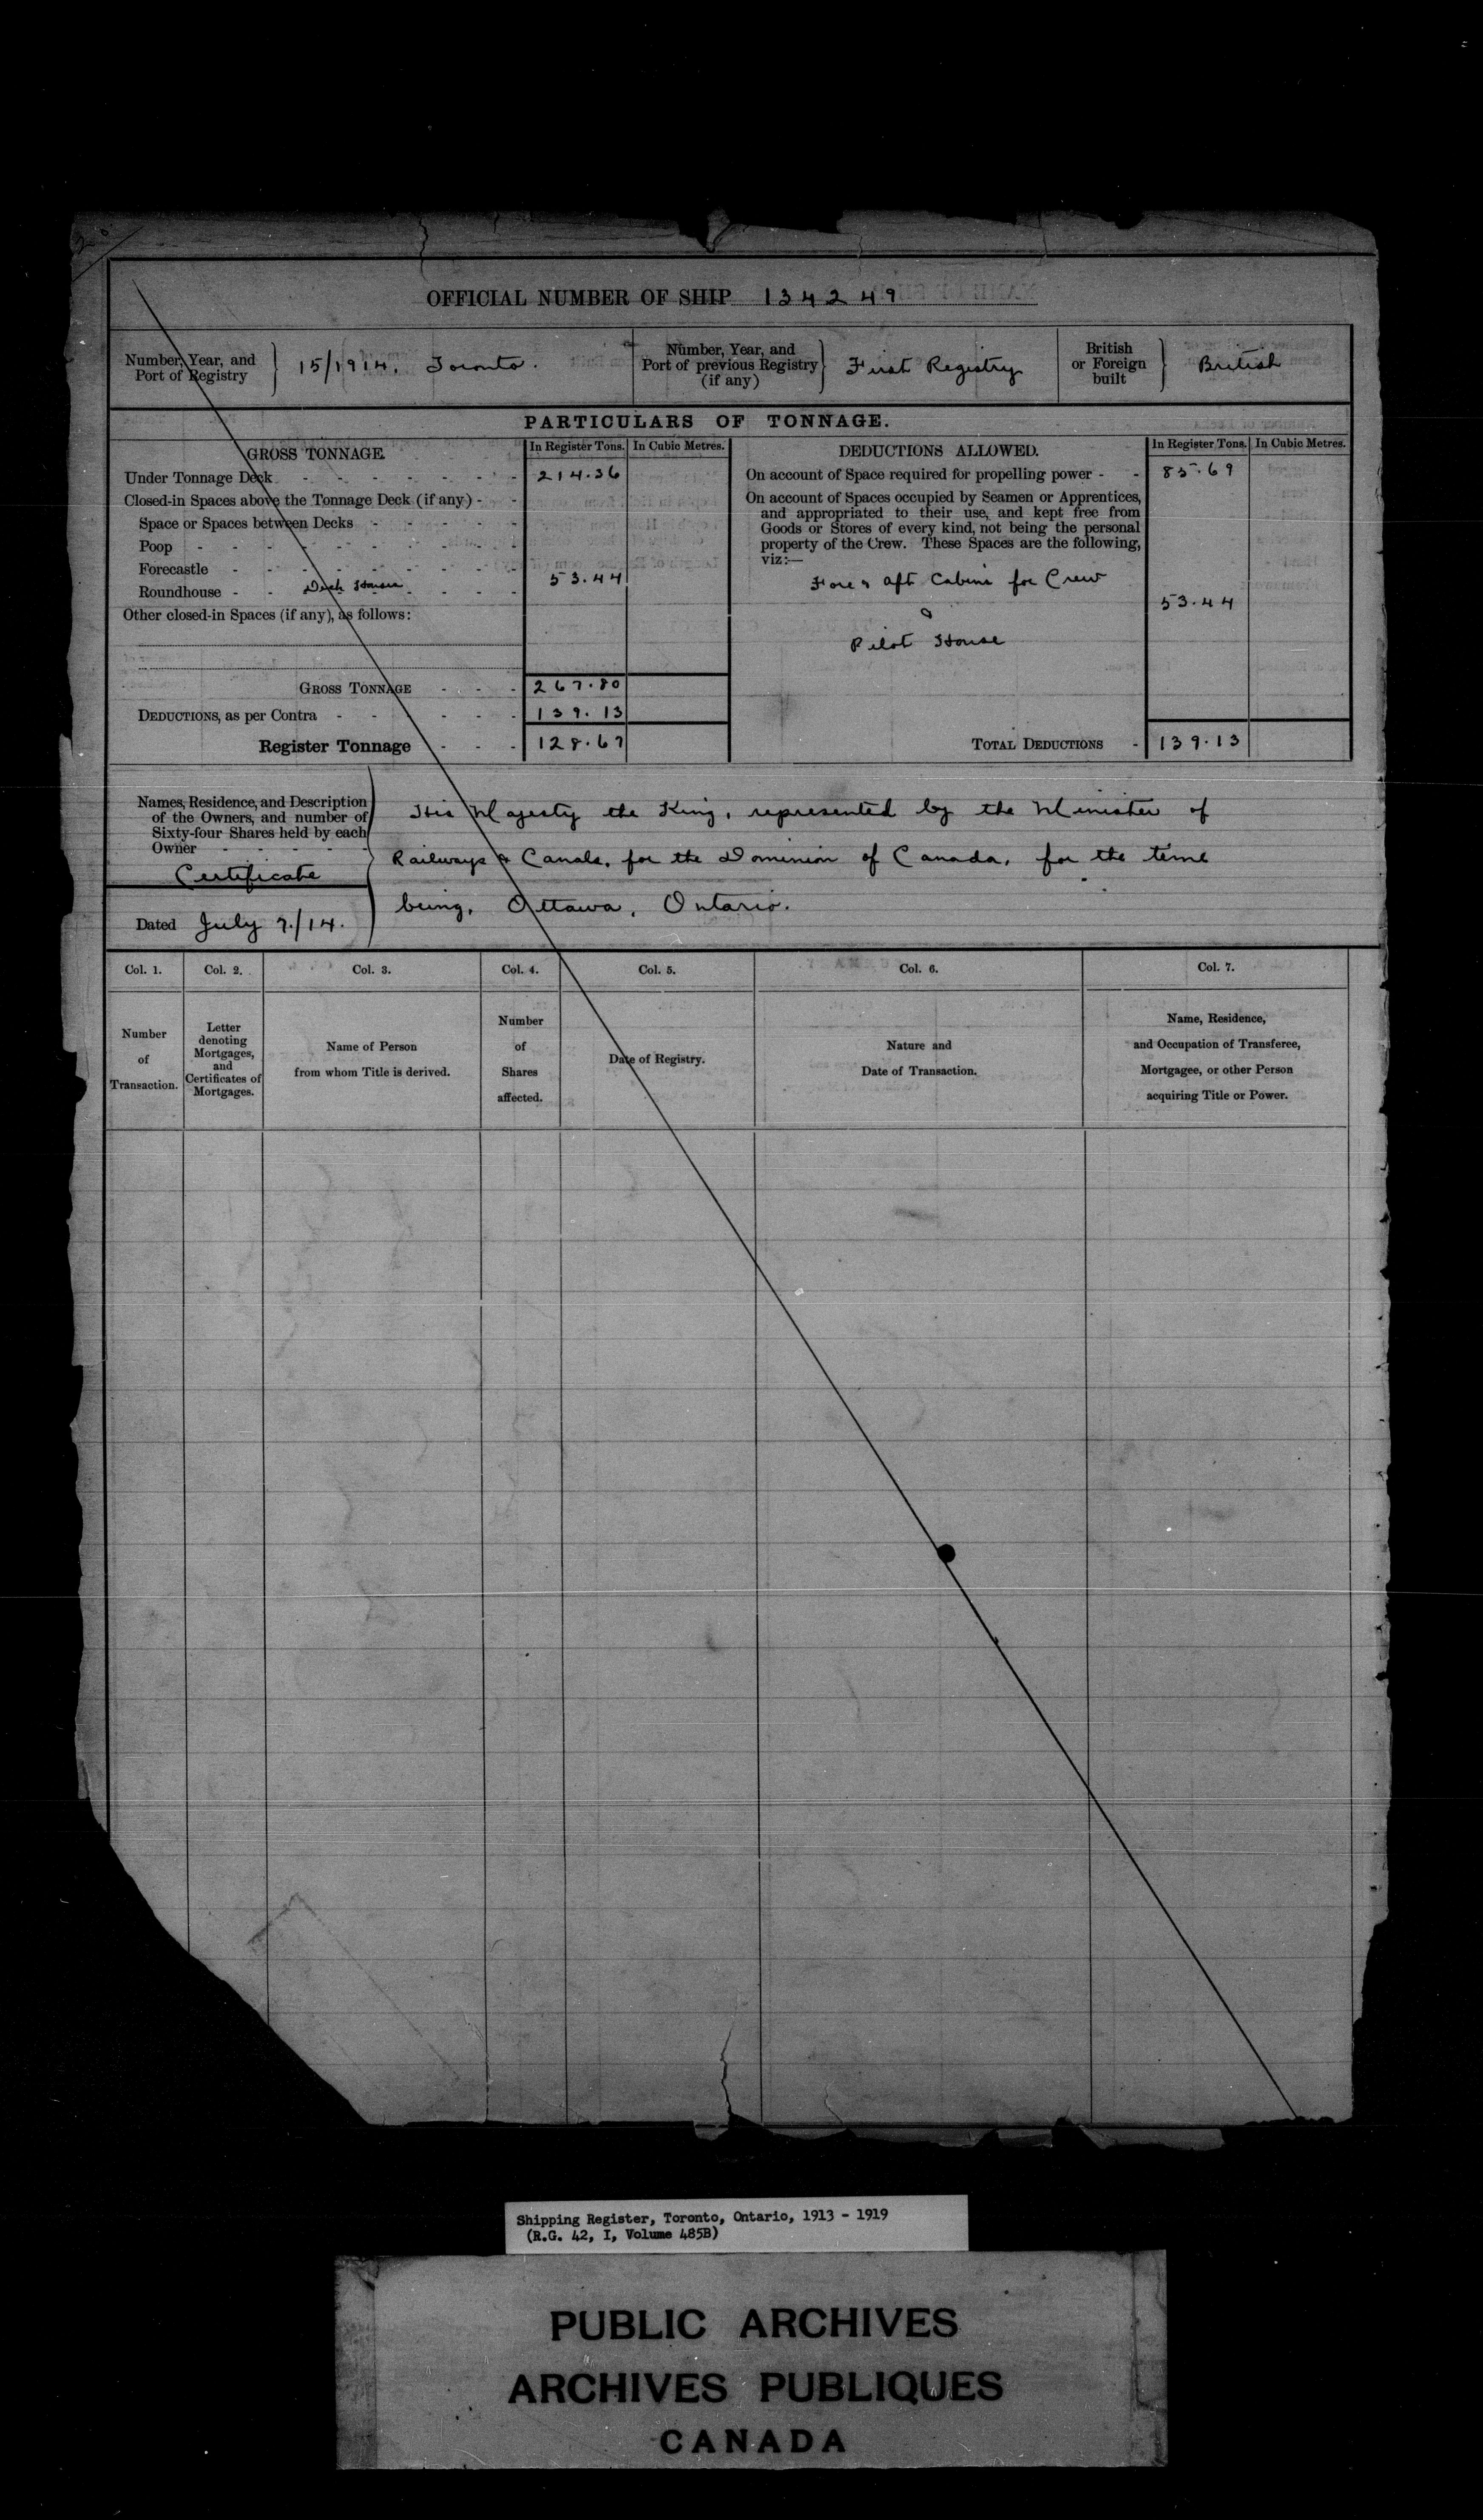 OFFICIAL NUMBER OF SHIP 134249
Number, Year, and Port of Registry } 15/1914, Toronto.
Number, Year, and Port of previous Registry (if any) } First Registry
British or Foreign built } British
PARTICULARS OF TONNAGE.
GROSS TONNAGE. In Register Tons. In Cubic Metres.
Under Tonnage Deck - - - - - - - 214.36
Closed-in Spaces above the Tonnage Deck (if any) - -
Space or Spaces between Decks - - - - -
Poop - - - - - - - - - -
Forecastle - - - - - - - - -
Roundhouse - - Deck Houses - - - - 53.44
Other closed-in Spaces (if any), as follows:
GROSS TONNAGE - - - 267.80
DEDUCTIONS, as per Contra - - - - - - 139.13
Register Tonnage - - - 128.67
DEDUCTIONS ALLOWED. In Register Tons. In Cubic Metres.
On account of Space required for propelling power - - 85.69
On account of Spaces occupied by Seamen or Apprentices,
and appropriated to their use, and kept free from
Goods or Stores of every kind, not being the personal
property of the Crew. These Spaces are the following,
viz:—
Fore & aft Cabins for Crew
& 53.44
Pilot House
TOTAL DEDUCTIONS - 139.13
Names, Residence, and Description
of the Owners, and number of
Sixty-four Shares held by each
Owner - - - - -
Certificate
Dated July 7/14.
His Majesty the King, represented by the Minister of
Railways & Canals, for the Dominion of Canada, for the time
being, Ottawa, Ontario.
Col. 1. Col. 2. Col. 3. Col. 4. Col. 5. Col. 6. Col. 7.
Number
of
Transaction.
Letter
denoting
Mortgages,
and
Certificates of
Mortgages.
Name of Person
from whom Title is derived.
Number
of
Shares
affected.
Date of Registry.
Nature and
Date of Transaction.
Name, Residence,
and Occupation of Transferee,
Mortgagee, or other Person
acquiring Title or Power.
Shipping Register, Toronto, Ontario, 1913 - 1919
(R.G. 42, I, Volume 485B)
PUBLIC ARCHIVES
ARCHIVES PUBLIQUES
CANADA